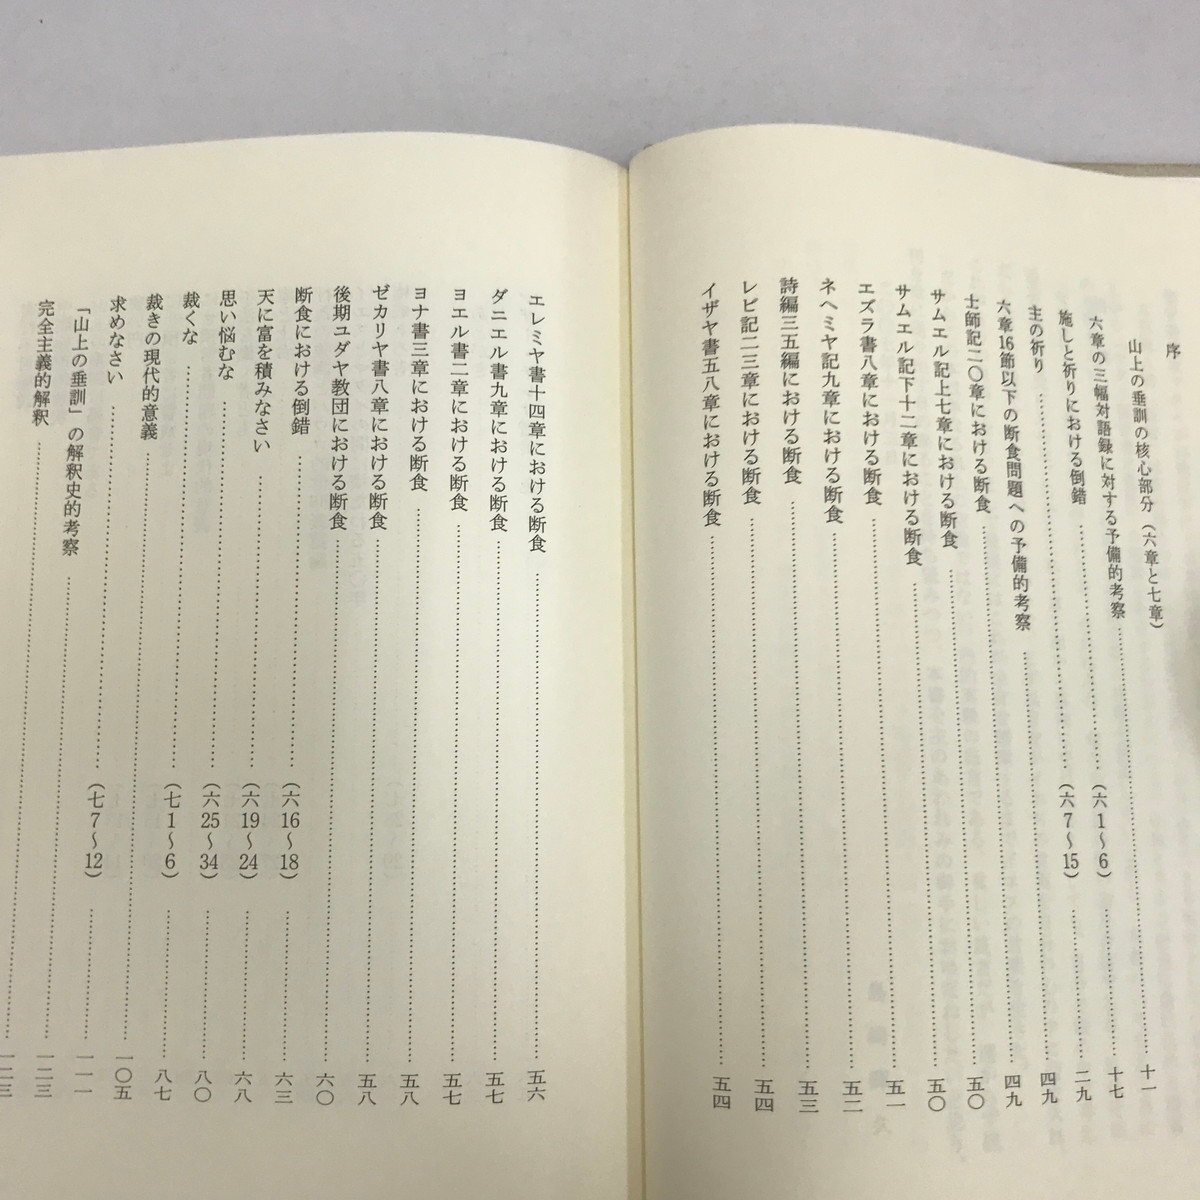 序
山上の垂訓の核心部分(六章と七章)
六章の三幅対語録に対する予備的考察……………十一
施しと祈りにおける倒錯……………(六1〜6)……………十七
主の祈り……………(六7〜15)……………二九
六章16節以下の断食問題への予備的考察……………四九
士師記二〇章における断食……………四九
サムエル記上七章における断食……………五〇
サムエル記下十二章における断食……………五〇
エズラ書八章における断食……………五一
ネヘミヤ記九章における断食……………五二
詩編三五編における断食……………五三
レビ記二三章における断食……………五四
イザヤ書五八章における断食……………五四
エレミヤ書十四章における断食……………五六
ダニエル書九章における断食……………五七
ヨエル書二章における断食……………五七
ヨナ書三章における断食……………五八
ゼカリヤ書八章における断食……………五八
後期ユダヤ教団における断食……………六〇
断食における倒錯……………(六16〜18)……………六三
天に富を積みなさい……………(六19〜24)……………六八
思い悩むな……………(六25〜34)……………八〇
裁くな……………(七1〜6)……………八七
裁きの現代的意義……………一〇五
求めなさい……………(七7〜12)……………一一一
「山上の垂訓」の解釈史的考察……………一二三
完全主義的解釈……………一二三